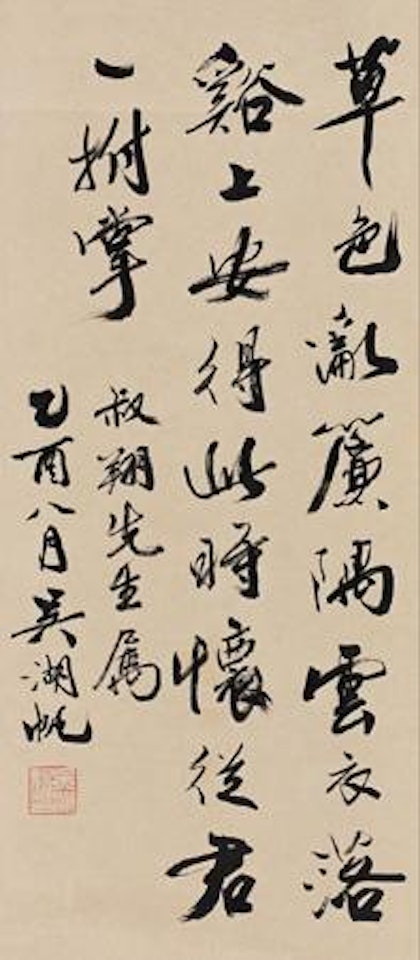 草色漱簾隅雲衣落
谿上安得此時懷從君
一拊掌
叔翔先生属
乙酉八月吳湖帆